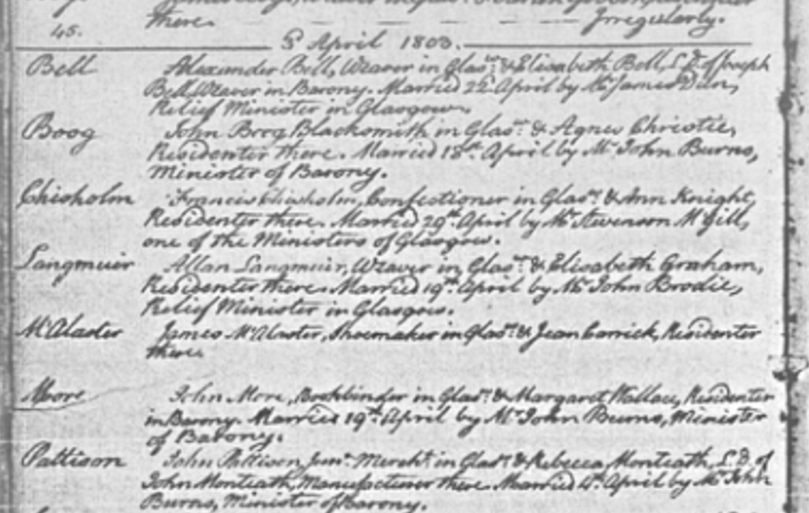 45. there. — — — — Irregularly.
April 1803.
Bell Alexander Bell, Weaver in Glasw. & Elisabeth Bell, L.D. of Joseph
Bell, Weaver in Barony. Married 22d. April by Mr. James Dun,
Relief Minister in Glasgow.
Boog John Boog Blacksmith in Glasw. & Agnes Christie,
Residenter there. Married 18th. April by Mr. John Burns,
Minister of Barony.
Chisholm Francis Chisholm, Confectioner in Glasw. & Ann Knight,
Residenter there. Married 29th. April by Mr. Stevenson McGill,
one of the Ministers of Glasgow.
Langmuir Allan Langmuir, Weaver in Glasw. & Elisabeth Graham,
Residenter there. Married 19th. April by Mr. John Brodie,
Relief Minister in Glasgow.
McAlaster James McAlaster, Shoemaker in Glasw. & Jean Carrick, Residenter
there
Moore John More, Bookbinder in Glasw. & Margaret Wallace, Residenter
in Barony. Married 19th. April by Mr. John Burns, Minister
of Barony.
Pattison John Pattison Junr. Mercht. in Glasw. & Rebecca Monteath, L.D. of
John Monteath, Manufacturer there. Married 4th. April by Mr. John
Burns, Minister of Barony.